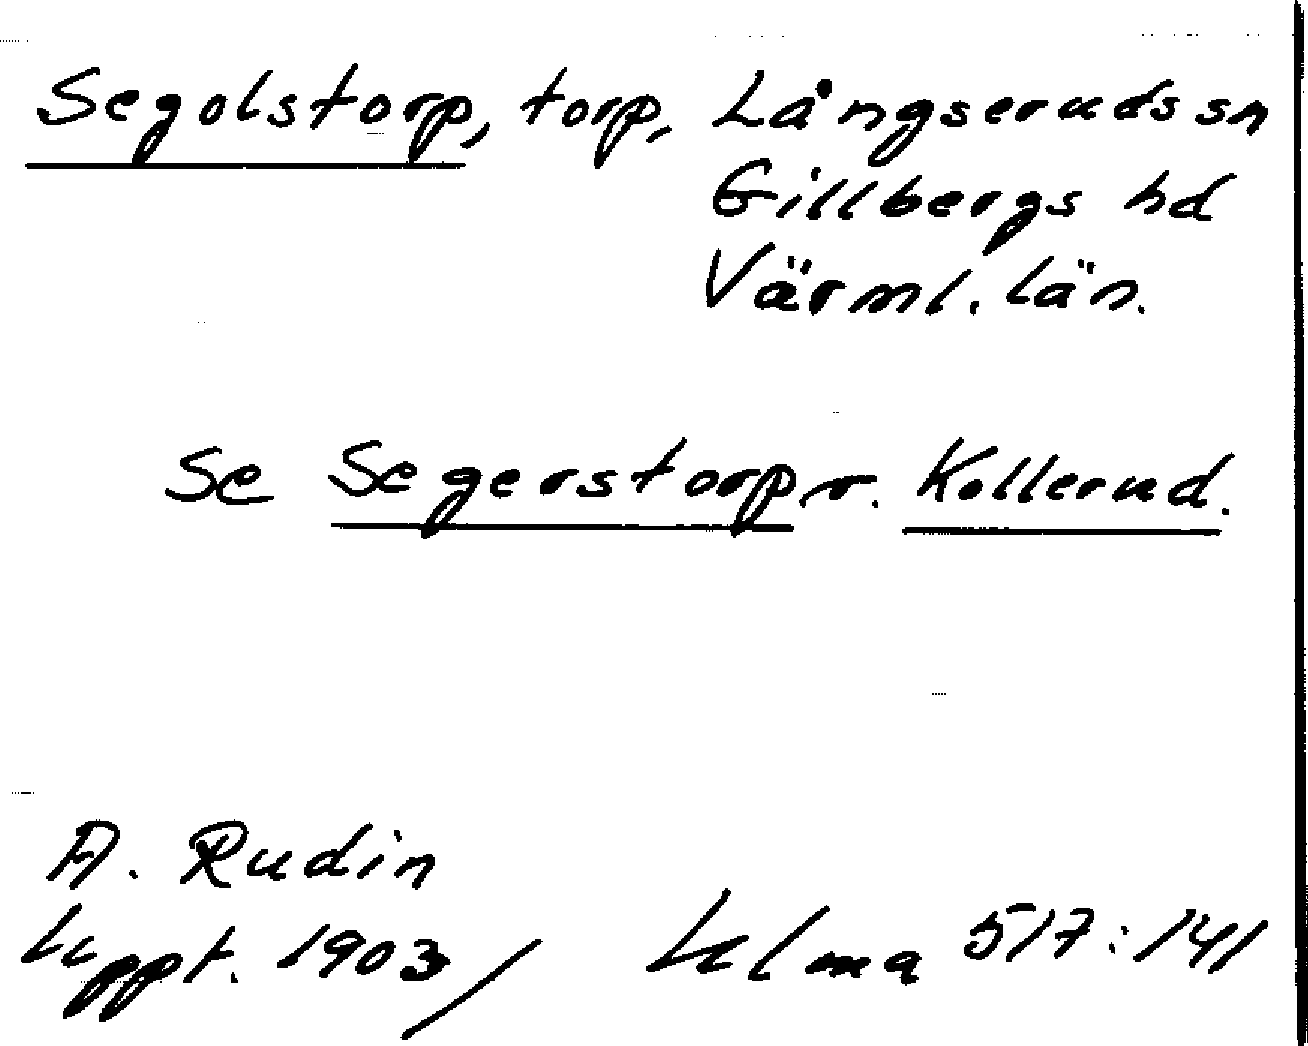 Segolstorp, torp, Långseruds sn
Gillbergs hd
Värml. län.
Se Segerstorp r. Kollerud.
A. Rudin
Uppt. 1903/ Ulma 517:141